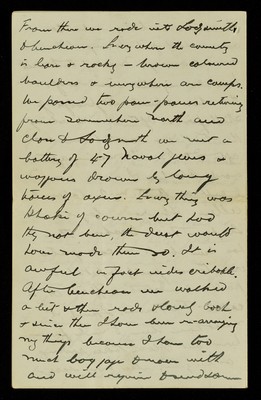 From there we rode into
& luncheon. Everywhere the country
is bare & rocky – brown coloured
boulders & everywhere are camps.
We passed two pom-poms returning
from somewhere north and
close to we met a
battery of 4.7 Naval guns &
waggons drawn by long
teams of oxen. Everything was
khaki of course but had
they not been, the dust would
have made them so. It is
awful in fact indescribable.
After luncheon we walked
a bit & then rode slowly back
& since then I have been rearranging
my things because I have too
much baggage to move with
and will require